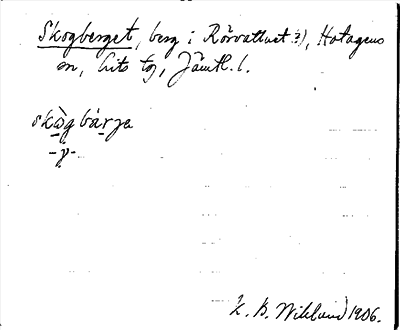 Skogberget, berg i Rörvattnet ?), Hotagens
sn, Lits tg, Jämtl. l.
skòg bárja
-y-
K. B. Wiklund 1906.